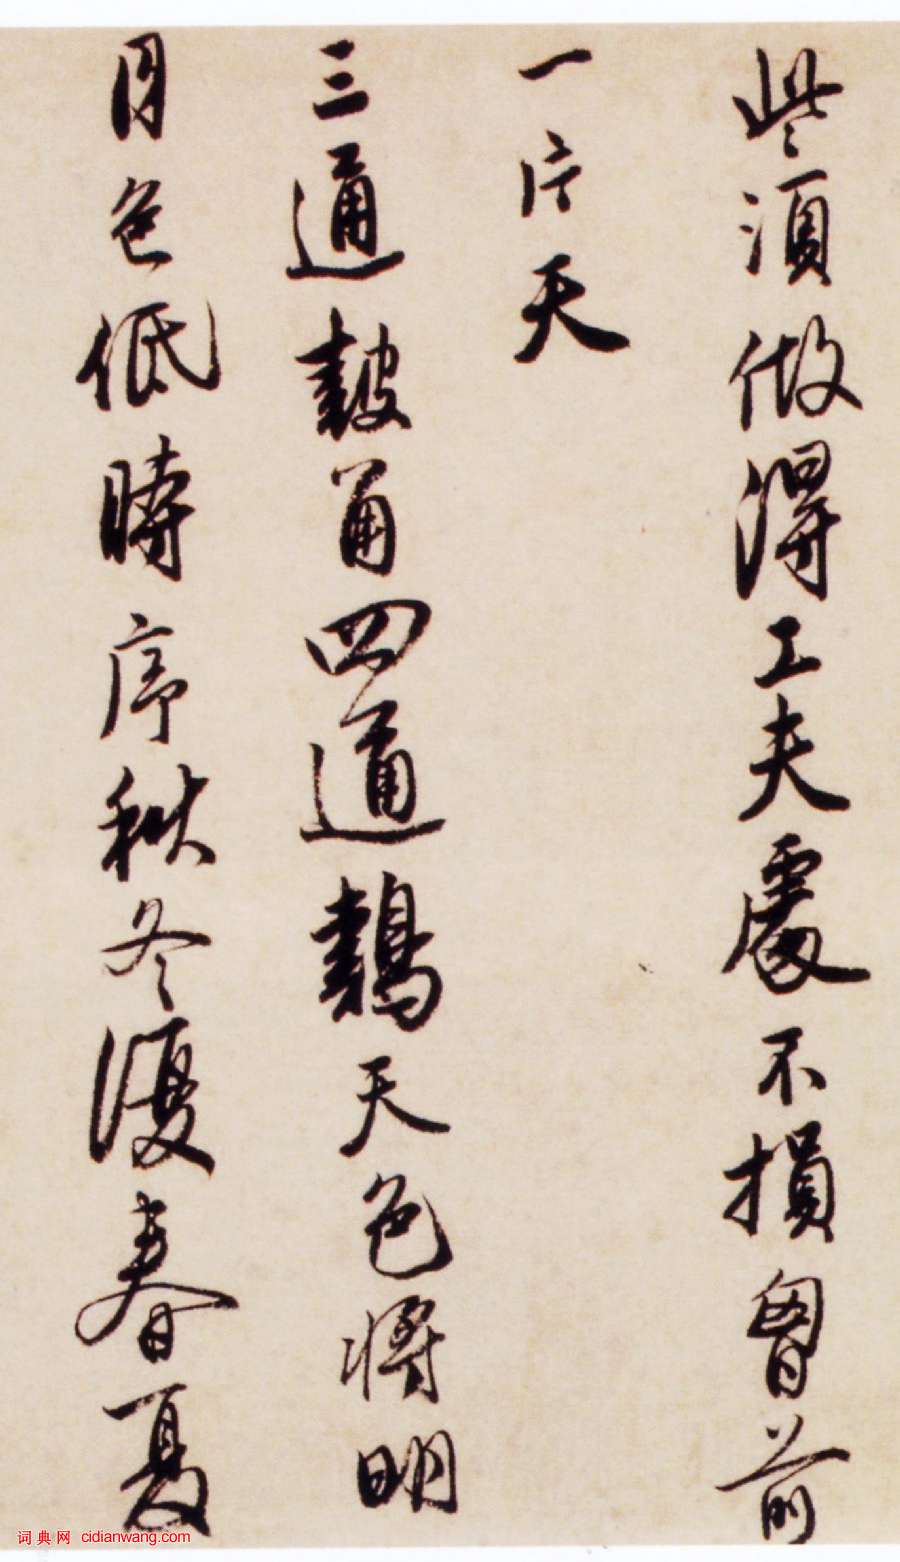 些須做得工夫處不損胷前
一片天
三通皷角四通鷄天色將明
月色低時序秋冬復春夏
词典网 cidianwang.com